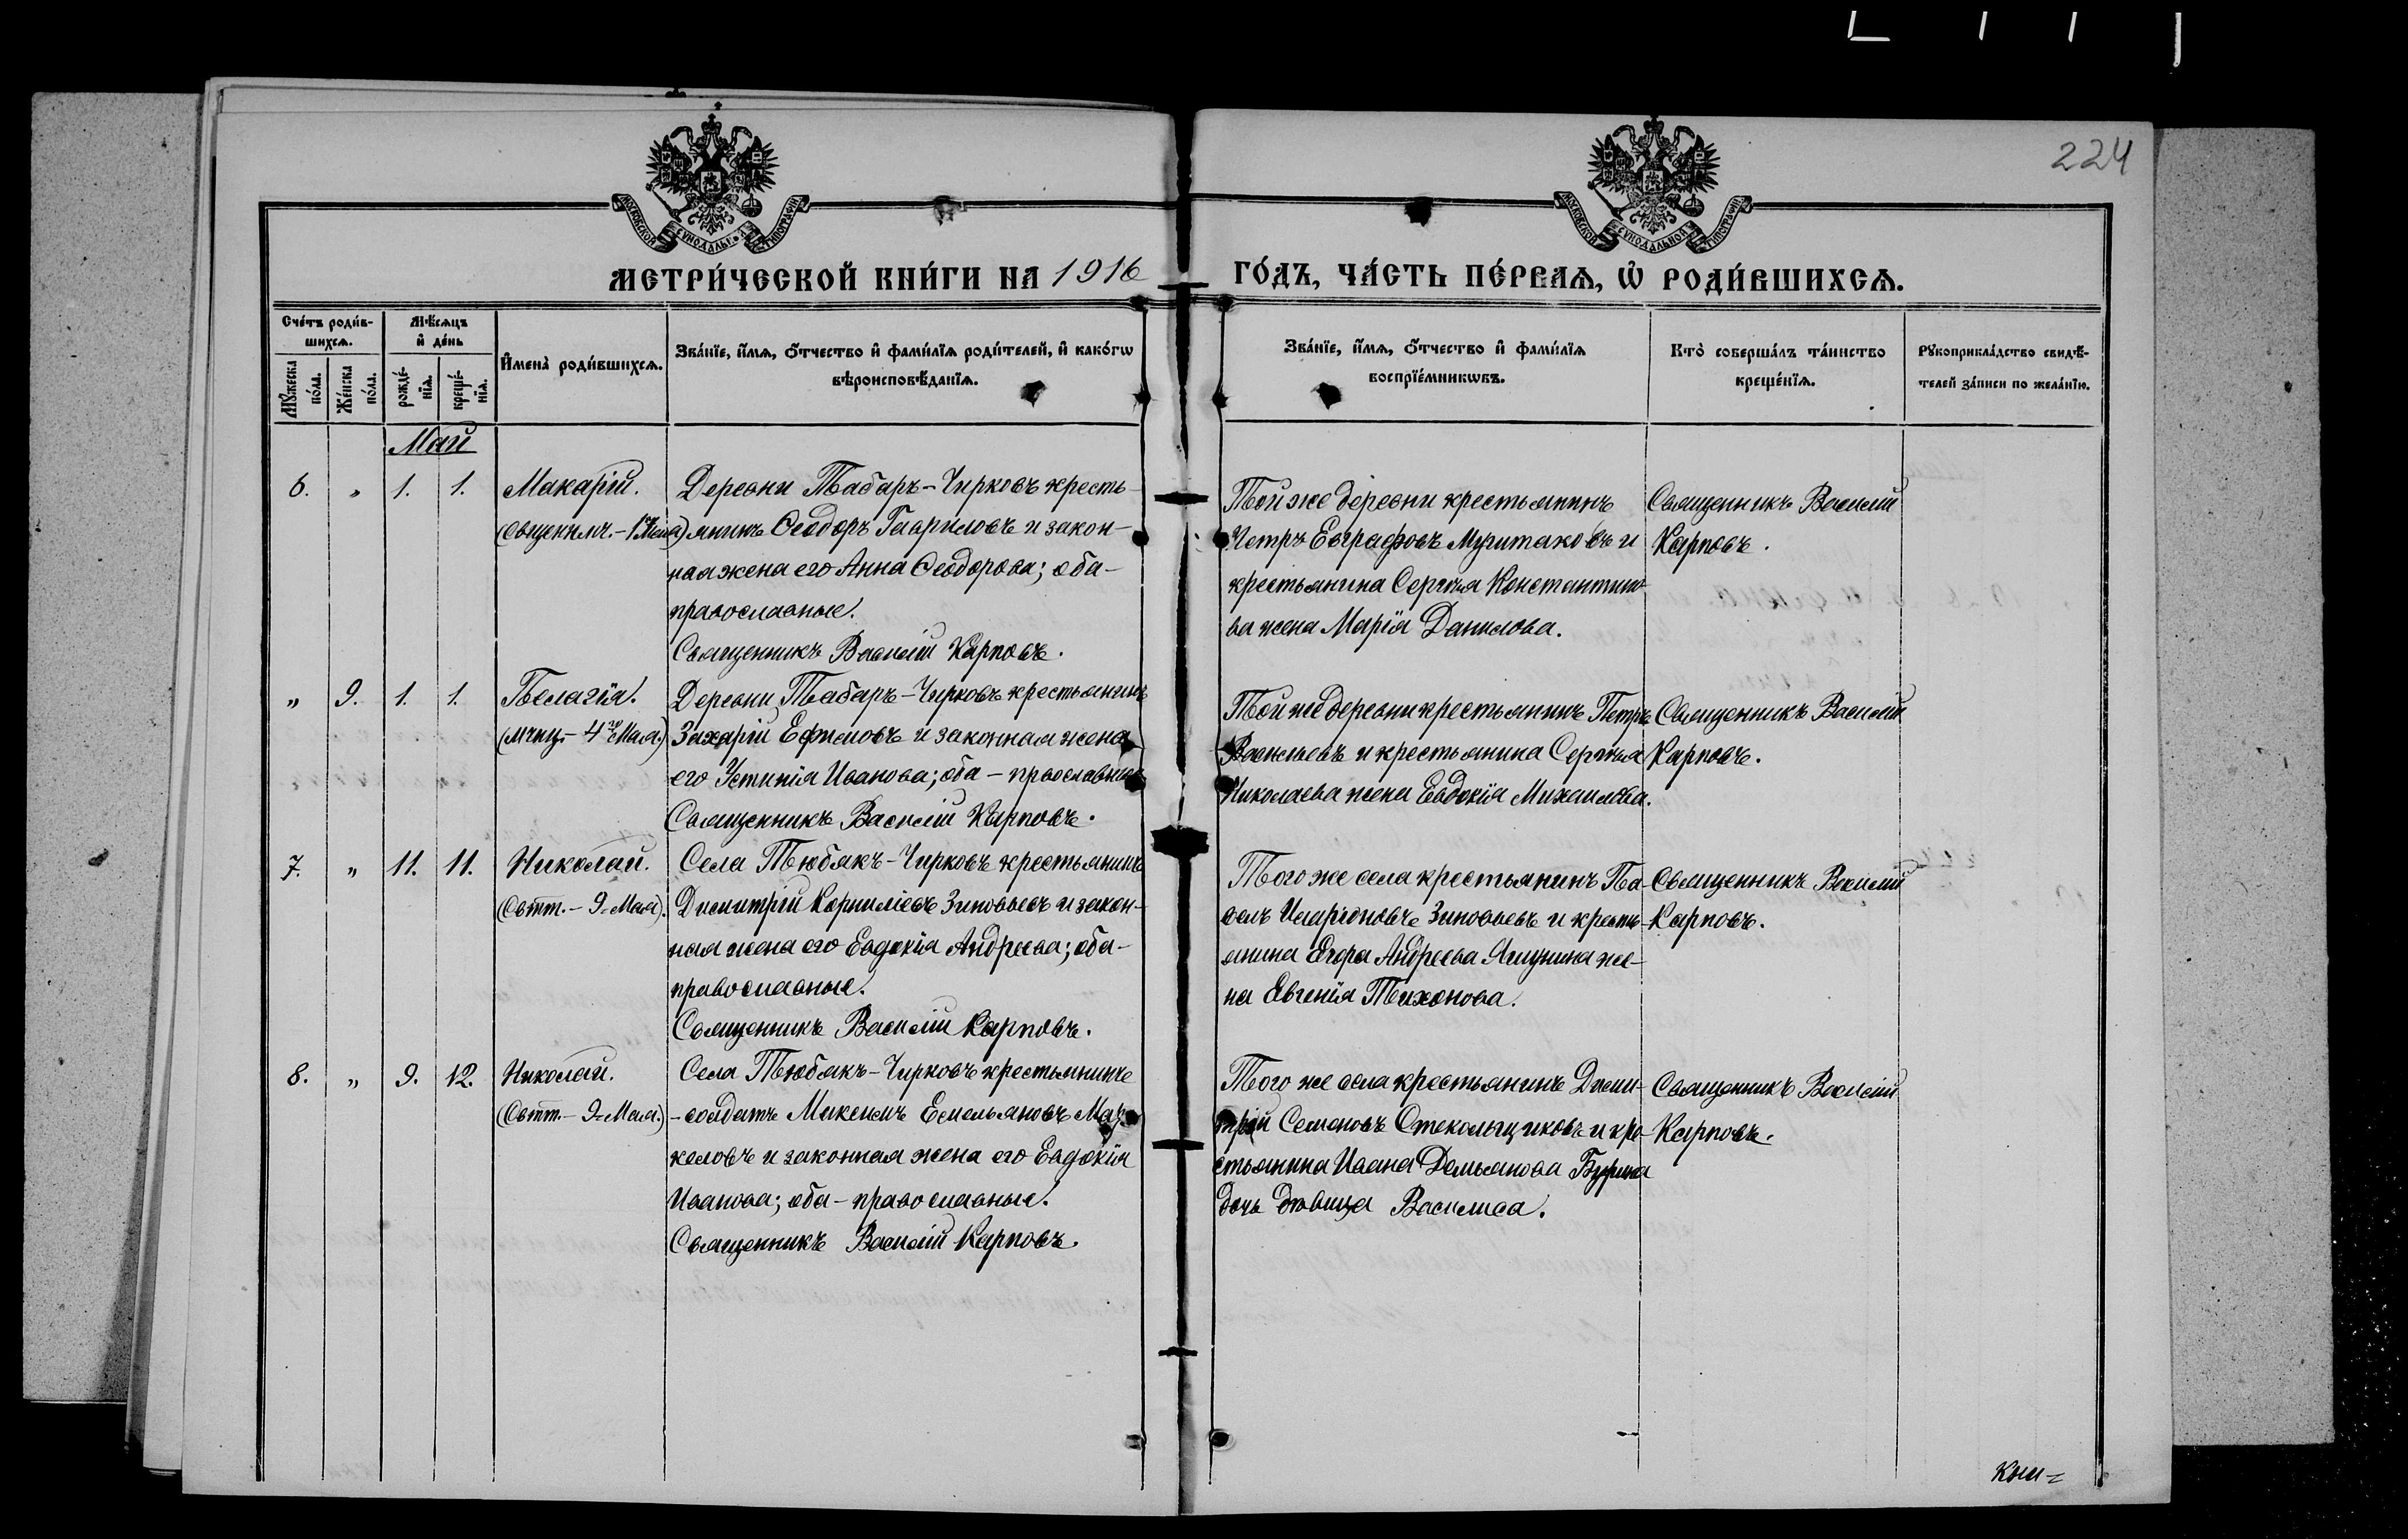 224
МОСКОВСКОЙ СУНОДАЛЬНОЙ ТИПОГРАФІИ
МОСКОВСКОЙ СУНОДАЛЬНОЙ ТИПОГРАФІИ
МЕТРИ́ЧЕСКОЙ КНИ́ГИ НА 1916
ГО́ДЪ, ЧА́СТЬ ПЕ́РВАѦ, Ѿ РОДИ́ВШИХСѦ.
Сче́тъ роди́в-
шихсѧ.
Мѣ́сѧцъ
и҆ де́нь
И҆мена̀ роди́вшихсѧ.
Зва́нїе, и҆́мѧ, ѻ҆́тчество и҆ фами́лїѧ роди́телей, и҆ како́гѡ
вѣроисповѣ́данїѧ.
Мꙋ́жеска
по́ла.
Же́нска
по́ла.
рожде́-
нїѧ.
креще́-
нїѧ.
Зва́нїе, и҆́мѧ, ѻ҆́тчество и҆ фами́лїѧ
воспрїе́мникѡвъ.
Кто̀ соверша́лъ та́инство
креще́нїѧ.
Рꙋкоприкла́дство свидѣ́-
телей за́писи по жела́нїю.
Май
6. „ 1. 1. Макарій.
(Священмч. – 1го Мая)
Деревни Табаръ-Чирковъ кресть-
янинъ Ѳеодоръ Гавриловъ и закон-
ная жена его Анна Ѳеодорова; оба –
православные.
Священникъ Василій Карповъ.
Той же деревни крестьянинъ
Петръ Евграфовъ и
крестьянина Сергѣя Константино-
ва жена Марія Данилова.
Священникъ Василій
Карповъ.
„ 9. 1. 1. Пелагія.
(мчнц. – 4го Мая.)
Деревни Табаръ-Чирковъ крестьянинъ
Захарій Ефимовъ и законная жена
его Устинія Иванова; оба – православные
Священникъ Василій Карповъ.
Той же деревни крестьянинъ Петръ
Васильевъ и крестьянина Сергѣя
Николаева жена Евдокія Михаилова.
Священникъ Василій
Карповъ.
7. „ 11. 11. Николай.
(Свтт. – 9 Мая).
Села Тюбякъ-Чирковъ крестьянинъ
Димитрій Корниліевъ Зиновьевъ и закон-
ная жена его Евдокія Андреева; оба –
православные.
Священникъ Василій Карповъ.
Того же села крестьянинъ Па-
велъ Иларіоновъ Зиновьевъ и кресть-
янина Егора Андреева Ягунина же-
на Евгенія Тихонова.
Священникъ Василій
Карповъ.
8. „ 9. 12. Николай.
(Свтт. – 9 Мая.)
Села Тюбякъ-Чирковъ крестьянинъ
– солдатъ Максимъ Емельяновъ Мар-
келовъ и законная жена его Евдокія
Иванова; оба – православные.
Священникъ Василій Карповъ.
Того же села крестьянинъ Дими-
трій Семеновъ Стекольщиковъ и кре-
стьянина Ивана Демьянова Бурина
дочь дѣвица Василиса.
Священникъ Василій
Карповъ.
Кни=